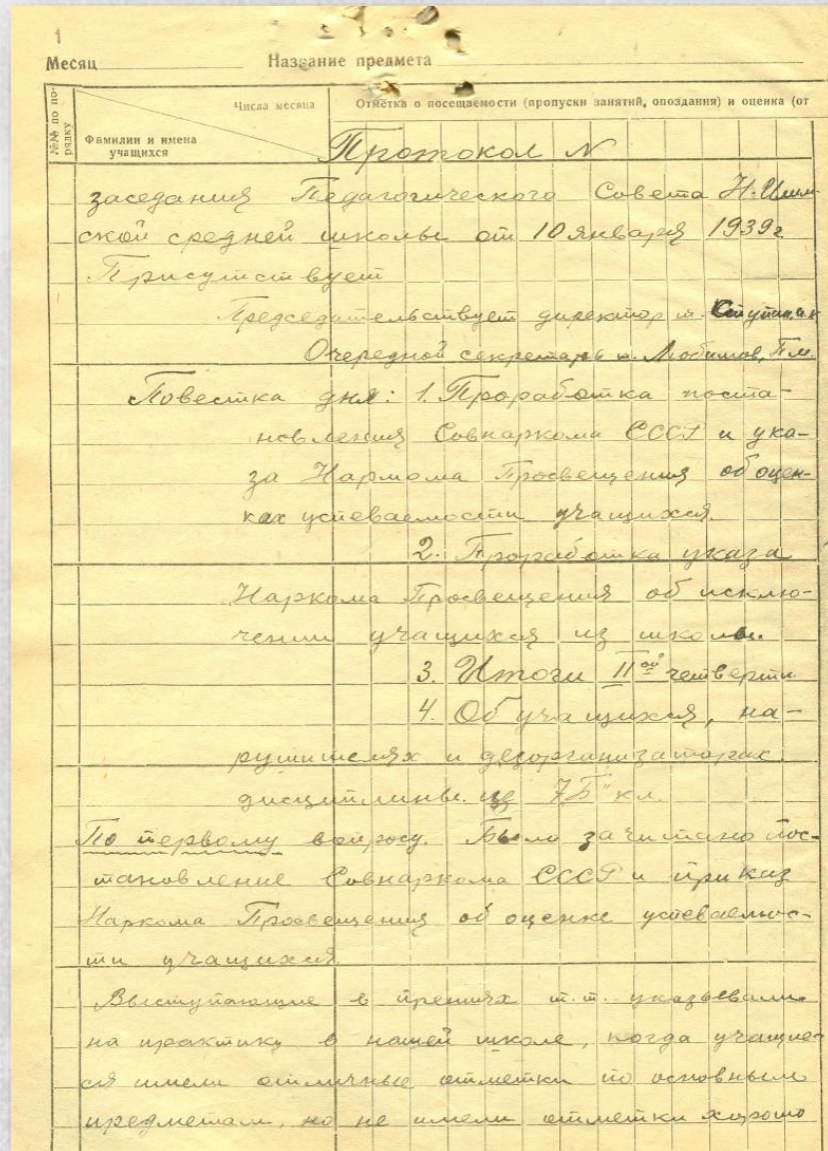 1
Месяц Название предмета
№№ по по-
рядку
Числа месяца
Отметка о посещаемости (пропуски занятий, опоздания) и оценка (от
Фамилии и имена
учащихся
Протокол N
заседания Педагогического Совета Н-Ишим-
ской средней школы от 10 января 1939 г
Присутствует
Председательствует директор т.
Очередной секретарь т. Любимов, П.М.
Повестка дня: 1. Проработка поста-
новления Совнаркома СССР и ука-
за Наркома Просвещения об оцен-
ках успеваемости учащихся.
2. Проработка указа
Наркома Просвещения об исклю-
чении учащихся из школы.
3. Итоги II ой четверти
4. Об учащихся, на-
рушителях и дезорганизаторах
дисциплины из "7Б" кл.
По первому вопросу. Было зачитано пос-
тановление Совнаркома СССР и приказ
Наркома Просвещения об оценке успеваемос-
ти учащихся.
Выступающие в прениях т.т. указывали
на практику в нашей школе, когда учащие-
ся имели отличные отметки по основным
предметам, но не имели отметки хорошо